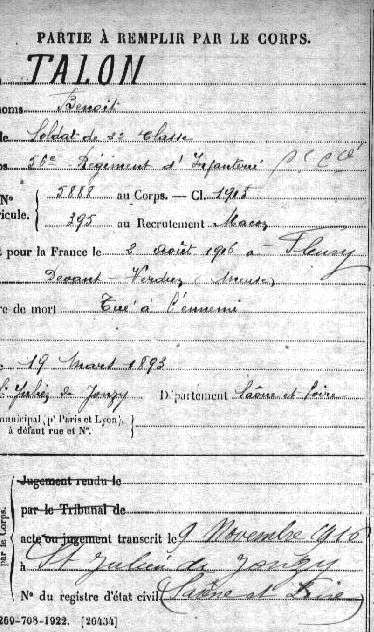 PARTIE À REMPLIR PAR LE CORPS.
TALON
oms Benoit
Soldat de 2e Classe
Régiment d'Infanterie
N° 5888 au Corps. — Cl. 1913
icule. 395 au Recrutement Macon
pour la France le 2 août 1916 à Fleury
Devant Verdun (Meuse)
re de mort Tué à l'ennemi
19 Mars 1893
St Julien de Jonzy Département Saône et Loire
municipal (pr Paris et Lyon),
à défaut rue et N°.
Jugement rendu le
par le Tribunal de
acte ou jugement transcrit le 9 Novembre 1916
par le Corps.
à St Julien de Jonzy
N° du registre d'état civil (Saône et Loire
269-708-1922. [26434]